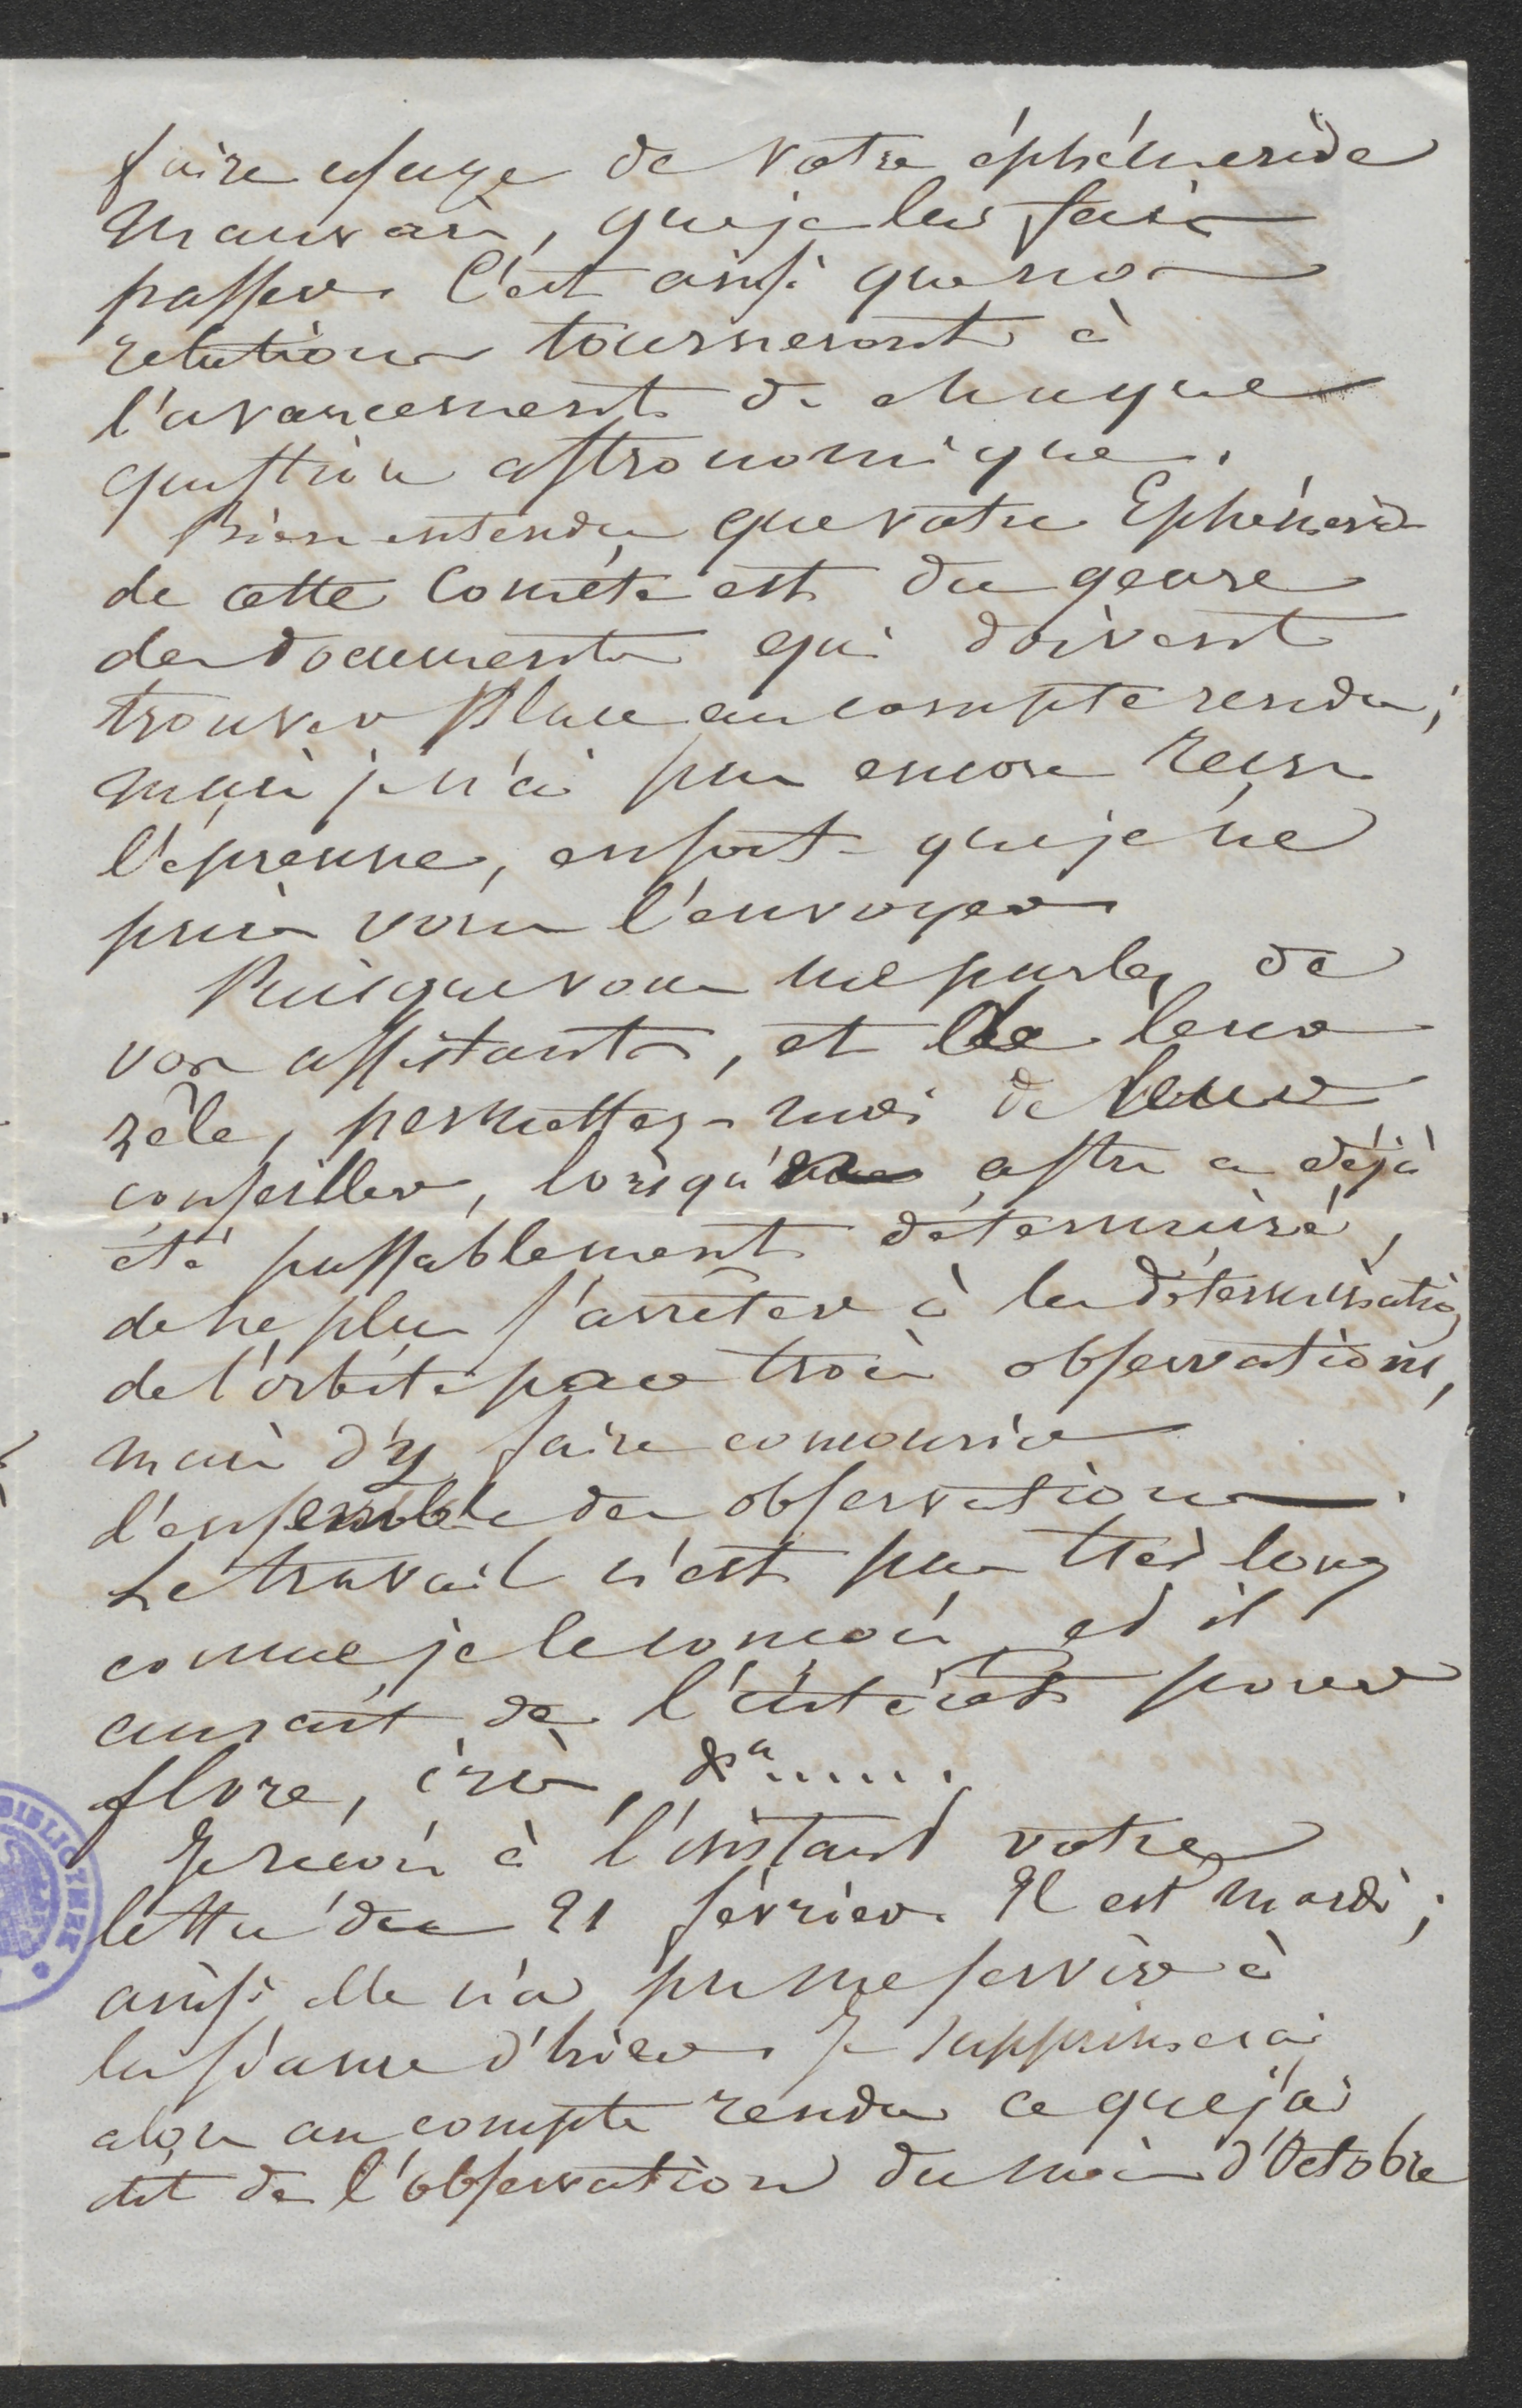 faire usage de votre éphéméride
Mauvais, que je les fais
passer. C'est ainsi que nos
relations tourneront à
l'avancement de chaque
question astronomique.
Bien entendu que votre Ephéméride
de cette Comète est du genre
des documents qui doivent
trouver place au compte rendu;
mais je n'ai pas encore reçu
l'épreuve, ensorte que je ne
puis vous l'envoyer
Puisque vous me parlez de
vos assistants, et de leur
zèle, permettez-moi de leur
conseiller, lorsqu'un astre a déjà
été passablement déterminé,
de ne plus s'arrêter à la détermination
de l'orbite par trois observations,
mais d'y faire concourir
l'ensemble des observations.
Le travail n'est pas très long
comme je le conçois, et il
aurait de l'intérêt pour
flore, iris, &a......
Je reçois à l'instant votre
lettre du 21 février. Il est mardi;
ainsi elle n'a pu me servir à
la séance d'hier. Je supprimerai
alors au compte rendu ce que j'ai
dit de l'observation du mois d'Octobre
BIBLIOTHEK